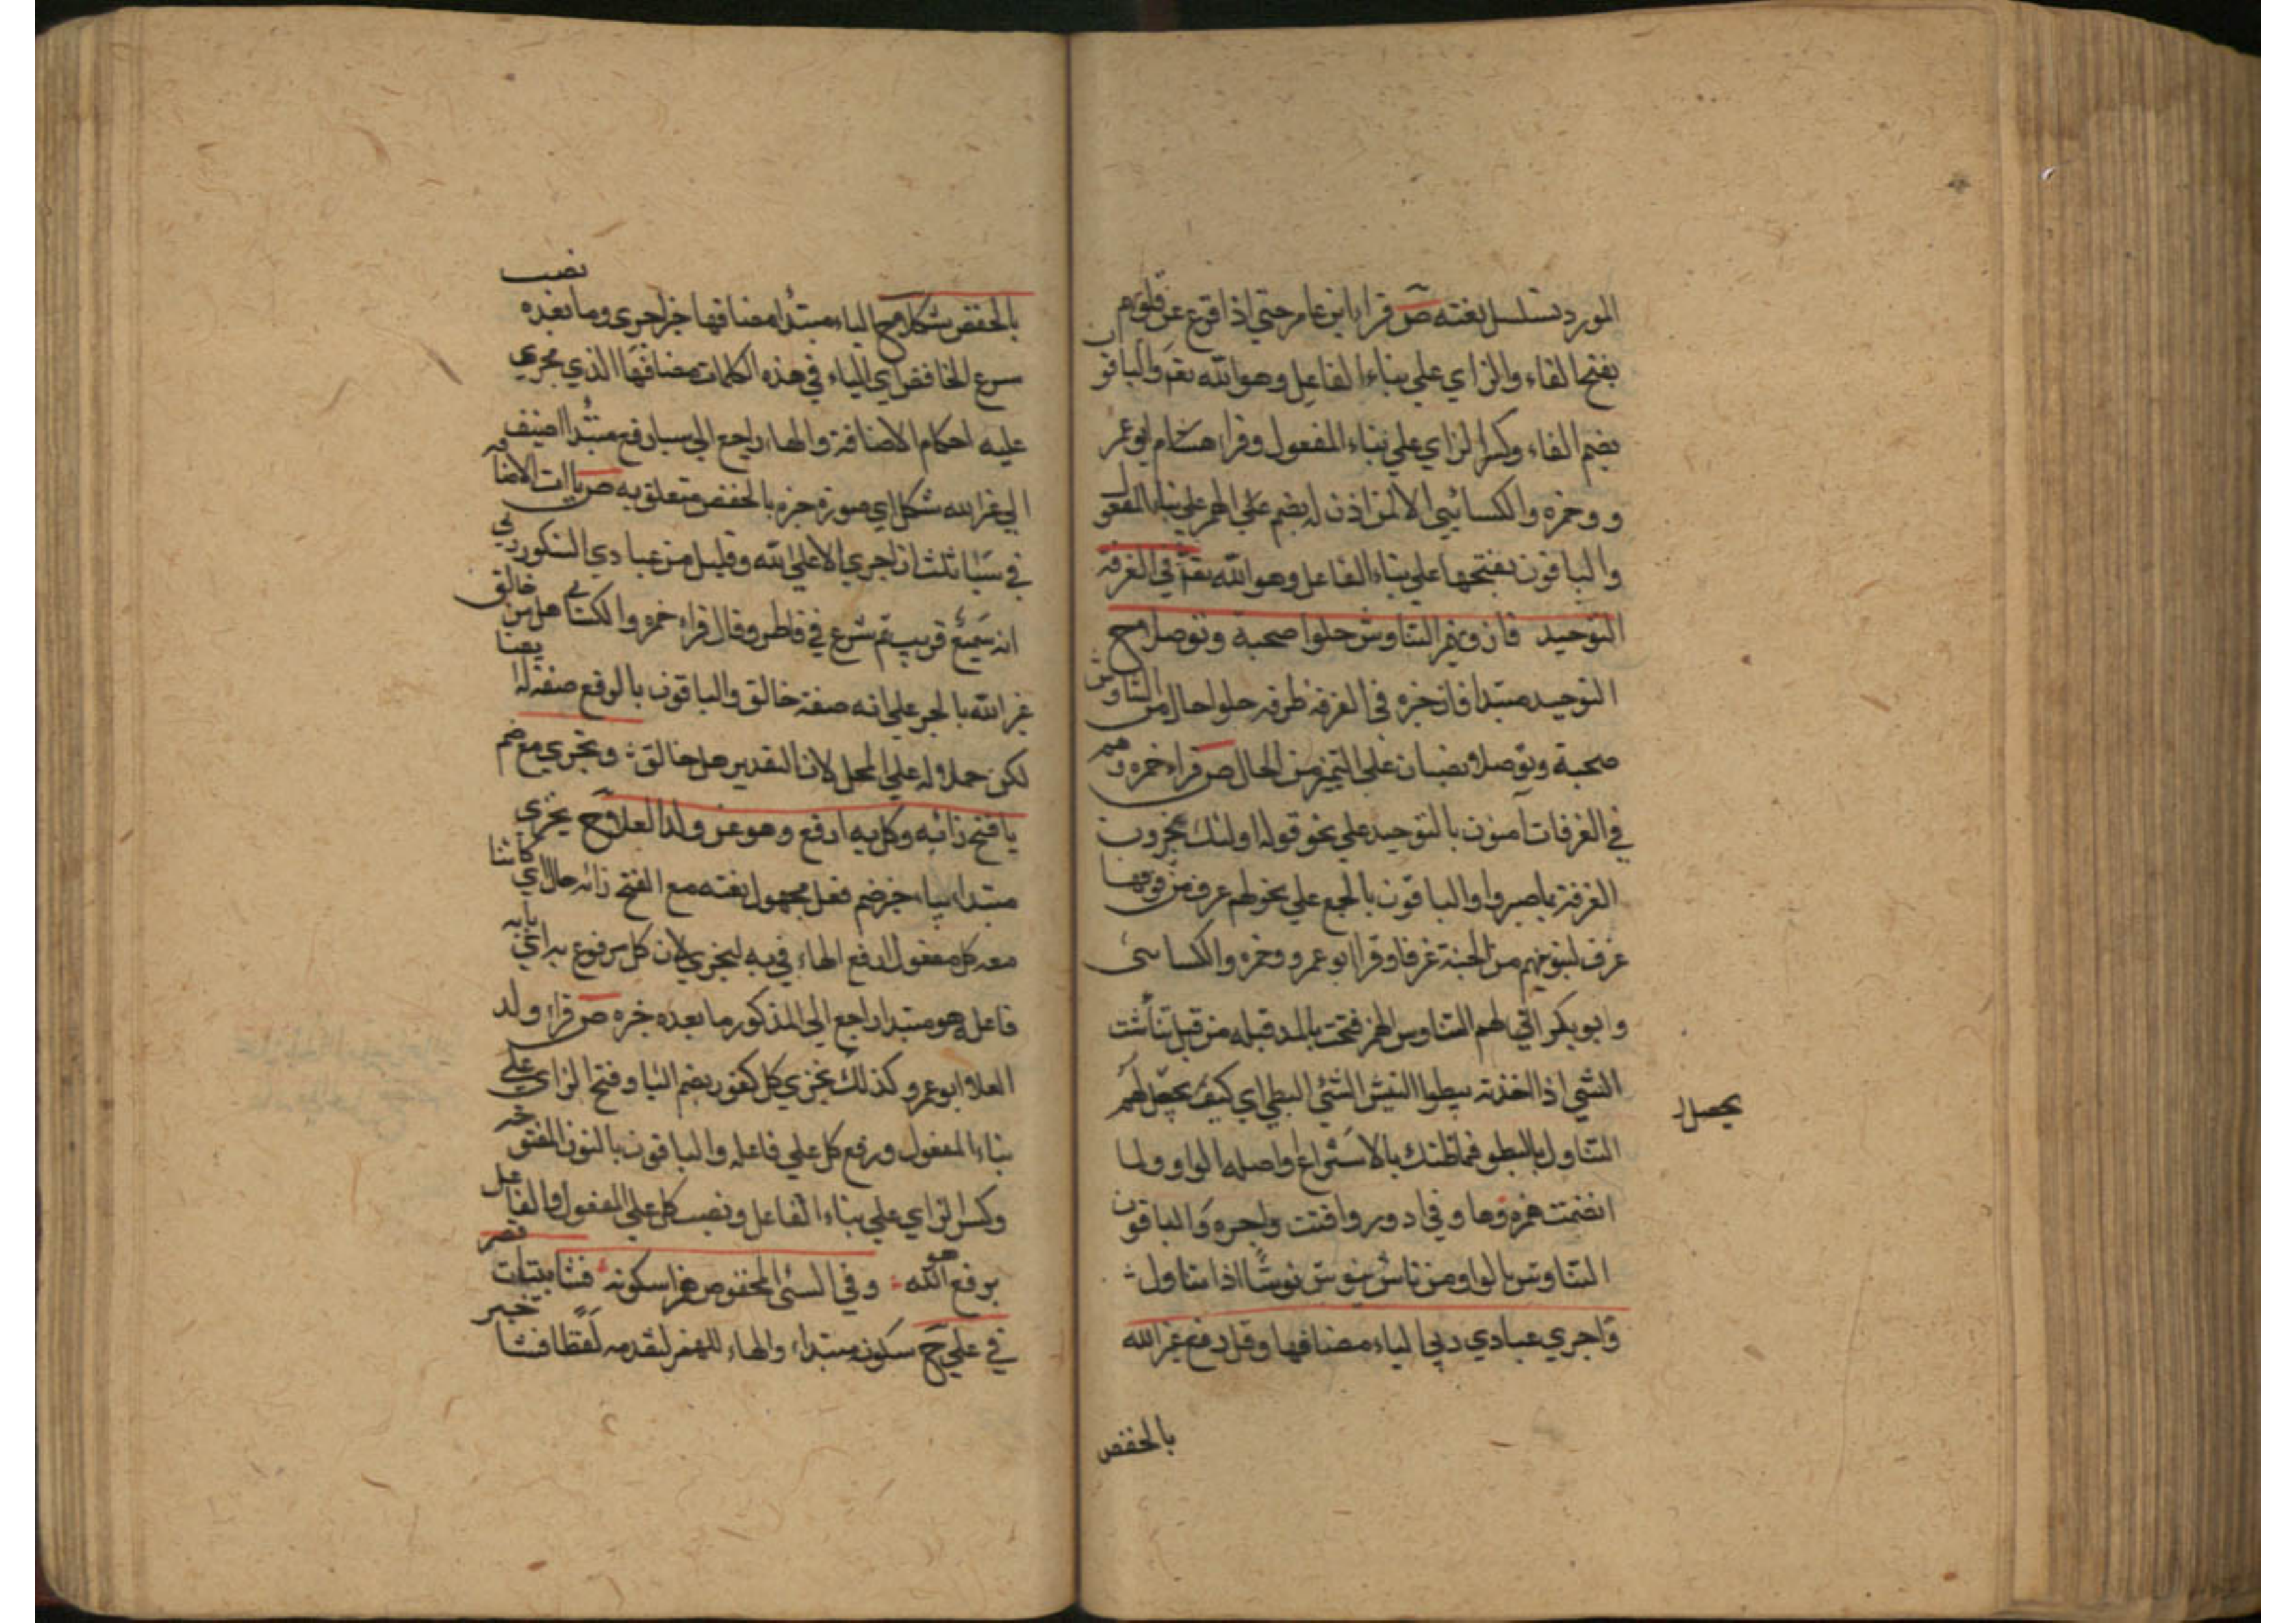 المورد تسلسل نعته ص قرا ابن عامر حتي اذا فزع عن قلوبهم
بفتح الفاء والزاي علي بناء الفاعل وهو الله تعم والباقون
بضم الفاء وكسر الزاي علي بناء المفعول وقرا هشام ابو عمر
و وحمزه والكسائيى الا لمن اذن له بضم علي الهمز علي بناء المفعول
والباقون بفتحها علي بناء الفاعل وهو الله تعم في الغرفه
التوحيد فاز ويهمز التناوش حلوا صحبة وتوصلا ح
التوحيد مبتدا فاز خبره في الغرفه ظرفه حلوا حال من التناوش
صحبة وتوصلا نصبان علي التميز من الحال ص قراء حمزه وهم
في الغرفات آمنون بالتوحيد علي نحو قوله اولئك يجزون
الغرفة بما صبروا والباقون بالجمع علي نحو لهم غرف من فوقها
غرف لنبوئنهم من الجنة غرفا وقرا ابو عمرو وحمزه والكسائى
وابو بكر اني لهم التناوش الهمز فتحت بالمد قبله من قبل تناشت
الشيى اذا اخذته ببطوا النيش الشئى البطي اي كيف يحصل لهم
يحصل لـ
التناول بالبطو فما ظنك بالاستراع واصله الواو ولما
انضمت همزه وها و في ادور واقتت واجره والباقون
التناوش بالواو من ناش ينوش نوشًا اذا تناول
واجري عبادي ربي الياء مضافها وقل رفع غير الله
بالخفض
بالخفض شكلا ح الياء مبتدا مضافها خبر اجرى وما بعده نصب
بنزع الخافض اي الياء في هذه الكلمات مضافها الذي يجري
عليه احكام الاضافة والهاء راجع الي سبا رفع مبتدا اضيف
الي غير الله شكل اي صورة خبره بالخفض متعلق به ص ياات الاضافه
في سبا ثلث ان اجري الا علي الله وقليل من عبادي الشكور ربي
انه سميع قريب ثم شرع في فاطر وقال قراء حمزه والكسائي هل من خالق
غير الله بالجر علي انه صفة خالق والباقون بالرفع صفة له ايضا
لكن حملا له علي المحل لان التقدير هل خالق ونجزي مع ضم
يا فتح زائه وكل به ارفع وهو عن ولد العلا ح نجزي
مبتدا بياء خبر ضم فعل مجهول نعته مع الفتح زائه حال اي كائنا
معه كل مفعول ارفع الهاء في به لنجزي لان كل مرفوع به اي بانه
فاعله هو مبتدا راجع الي المذكور ما بعده خبره ص قرا ولد
العلا ابو عمرو كذلك يجزي كل كفور بضم اليا وفتح الزاي علي
بناء المفعول ورفع كل علي فاعله والباقون بالنون المفتوحه
وكسر الزاي علي بناء الفاعل ونصب كل علي المفعول والفاعل
برفع هو الله وفي السئى المخفوض همزا سكونه فشا بينات قصر
في علي ح سكونه مبتداء والهاء للهمز لتقدمه لفظا فشا خبر